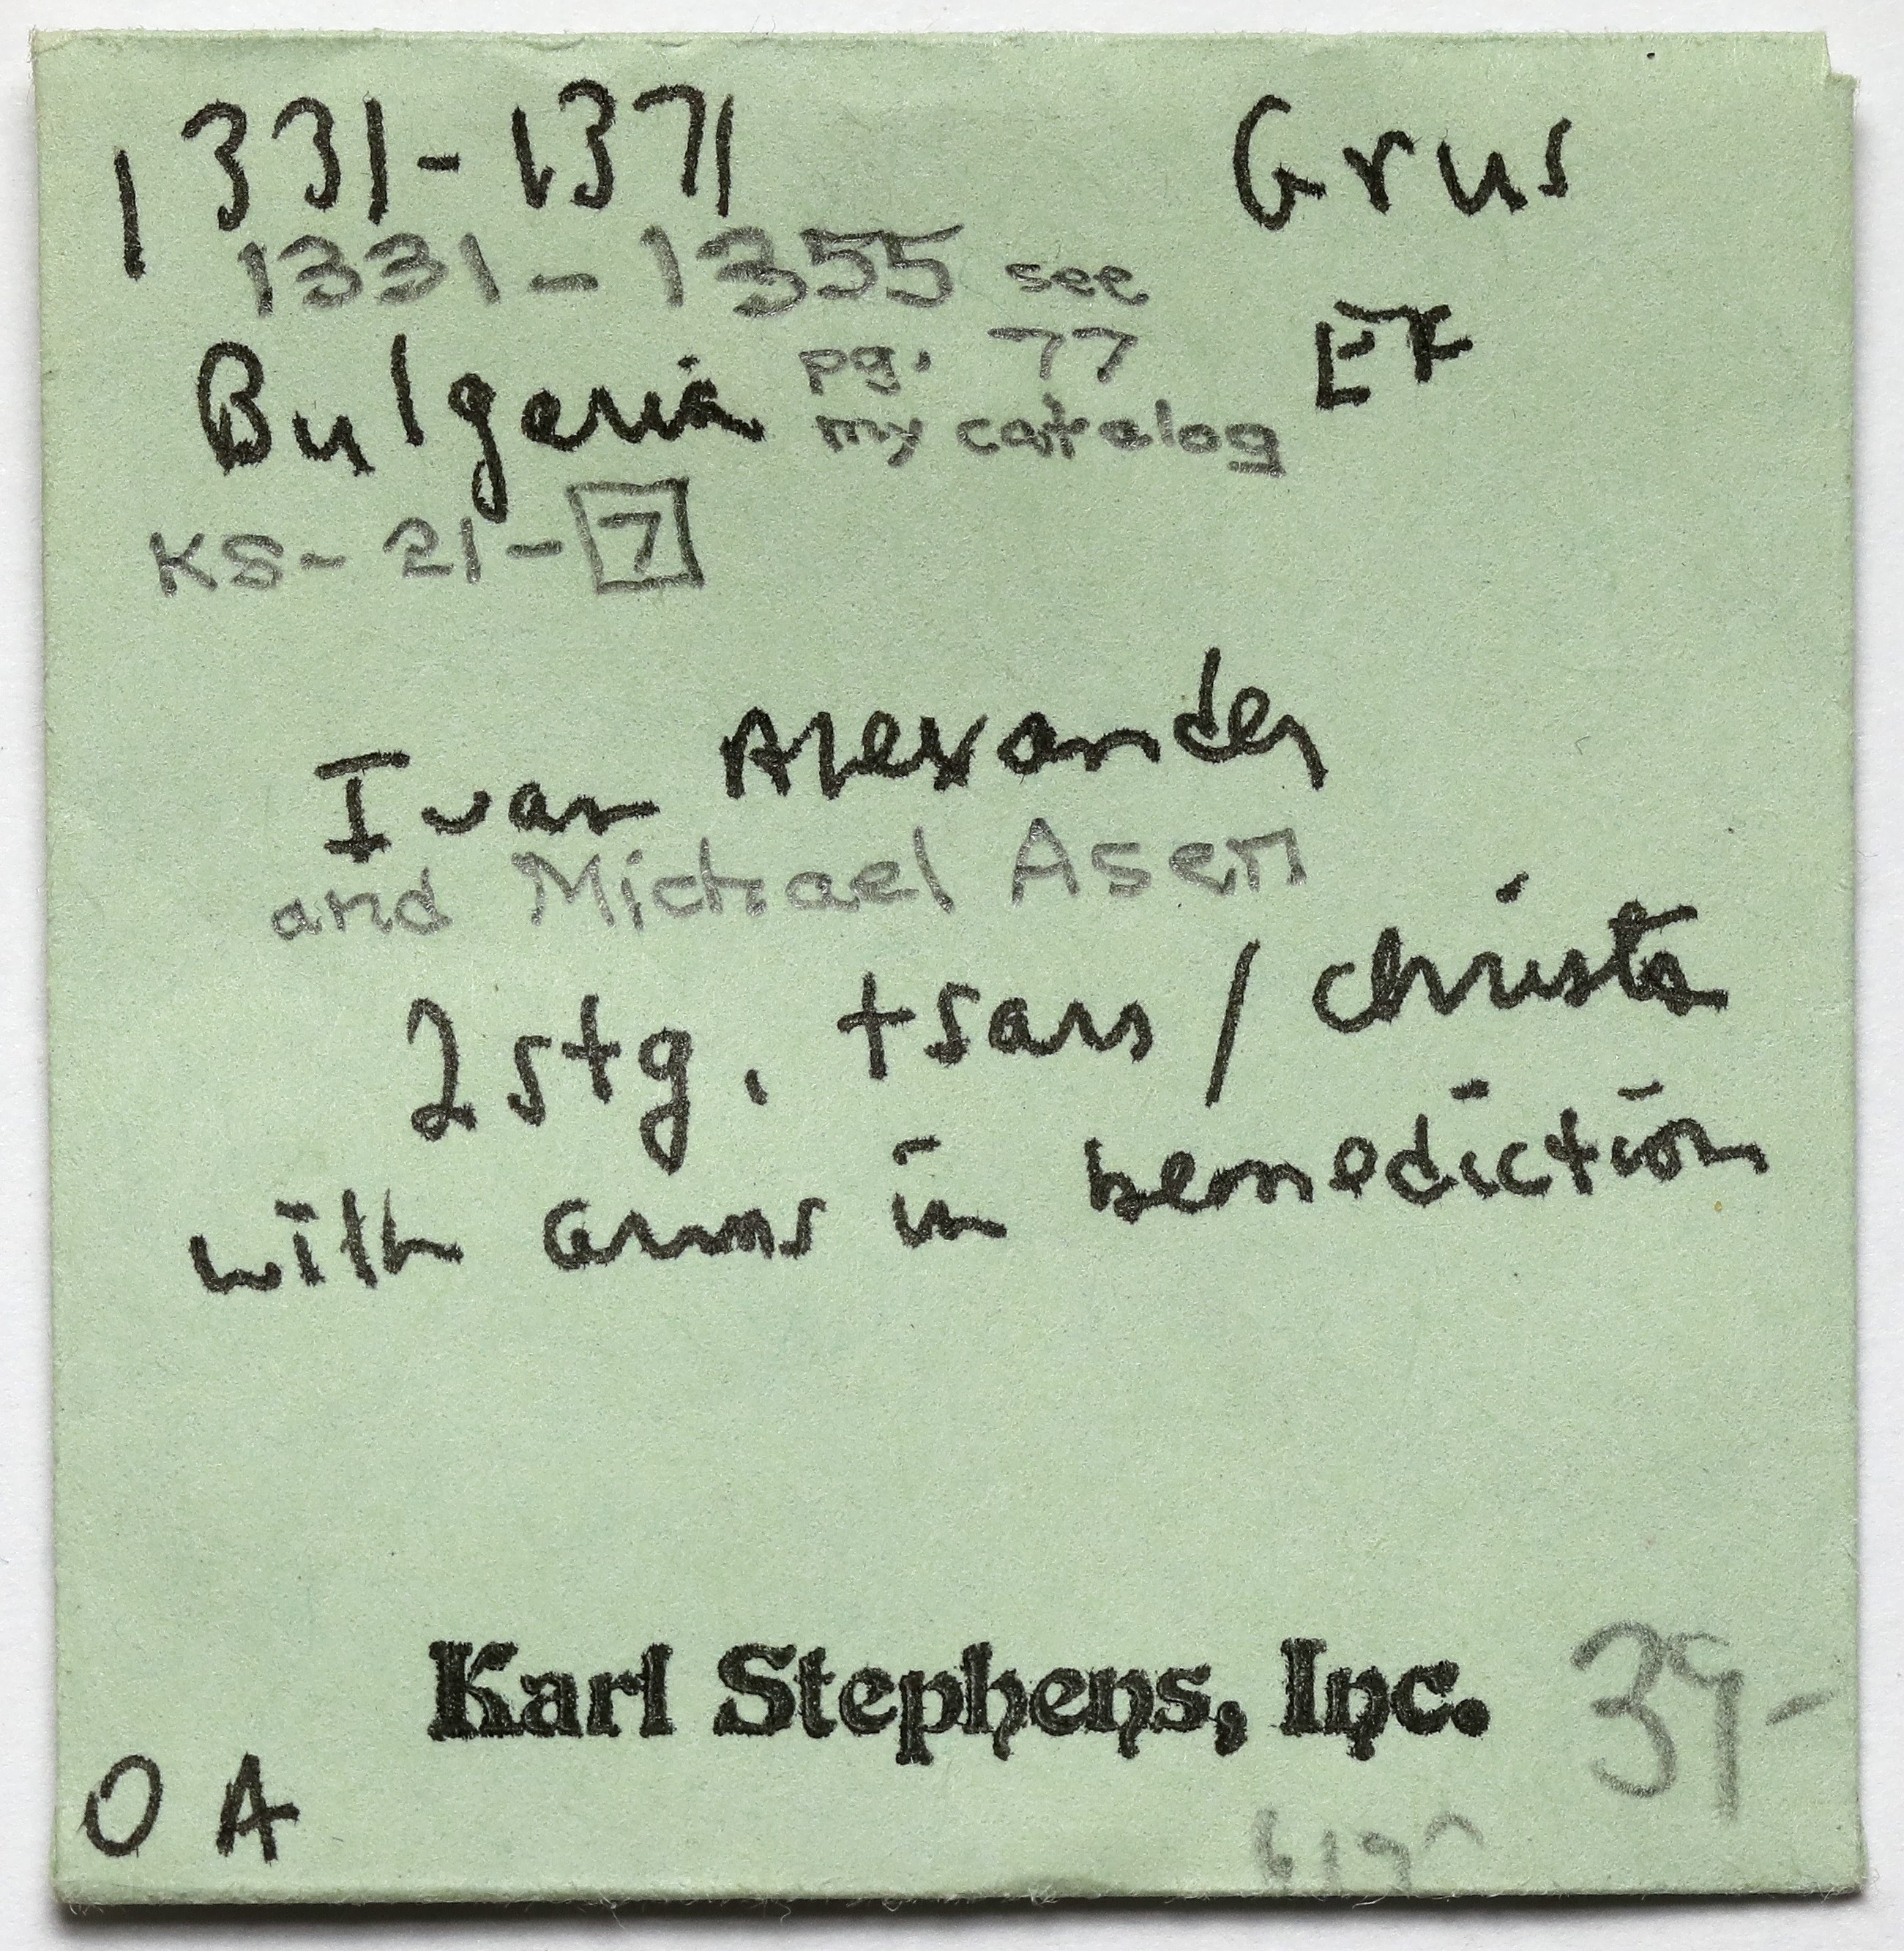 1331-1371 Grus
1331-1355 see
Bulgaria pg. 77 EF
my catalog
KS-21-7
Ivan Alexander
and Michael Asen
2 stg. tsars / Christ
with arms in benediction
Karl Stephens, Inc. 39-
O A